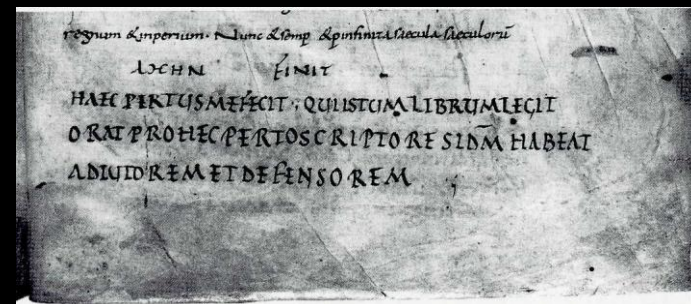 regnum &inperium. Nunc &semp &pinfinita saecula saeculorū
AMEN FINIT
HAEC PERTUS MEFECIT; QUI ISTUM LIBRUM LEGIT
ORAT PRO HECPERTO SCRIPTORE SI DM̄ HABEAT
ADIUTOREM ET DEFENSOREM ;